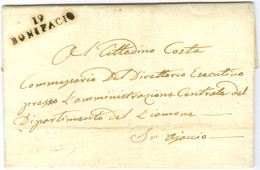 19
BONIFACIO
Al Cittadino Costa
Commissario del Direttorio Esecutivo
presso L'amministrazione Centrale del
Dipartimento del Liamone
In Ajaccio